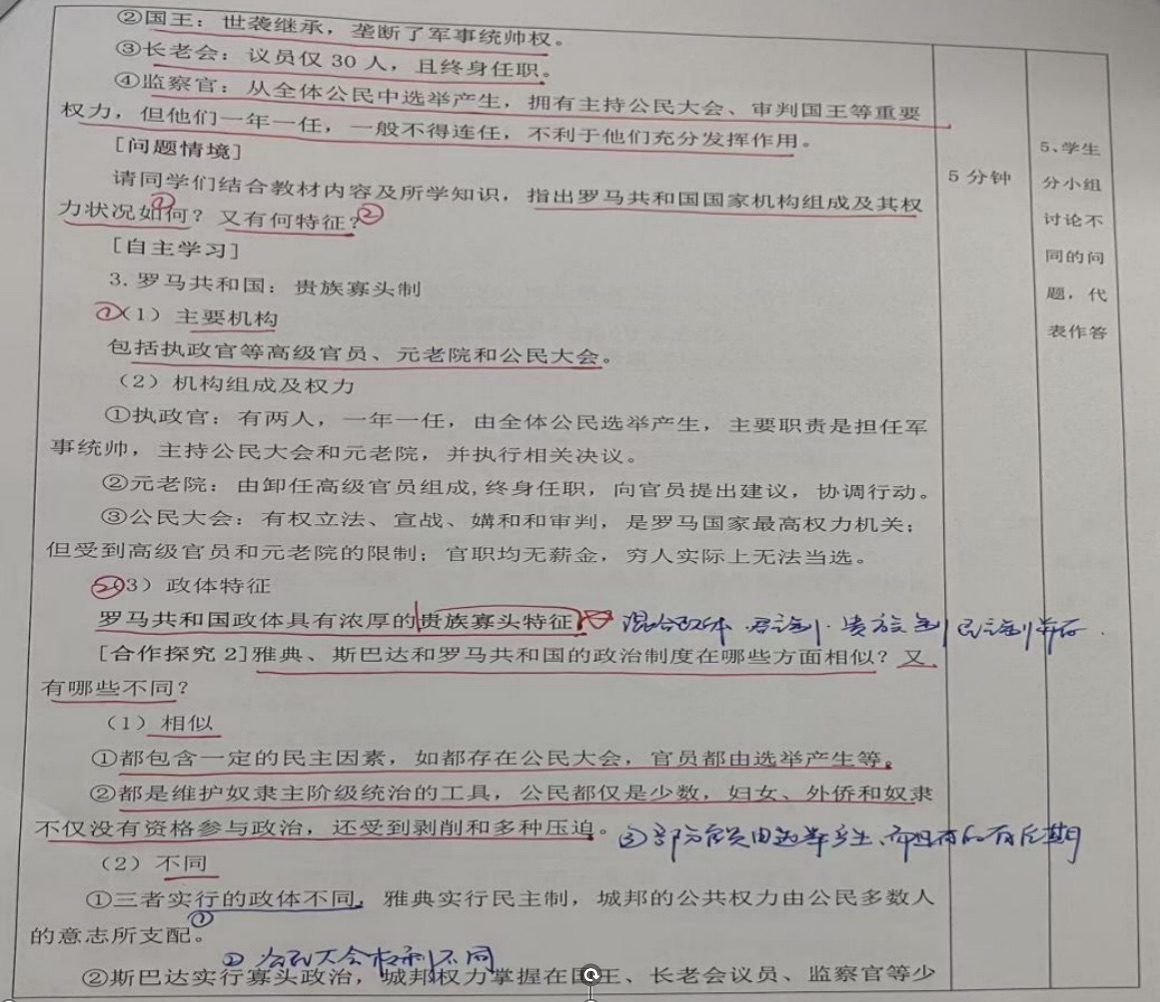 ②国王：世袭继承，垄断了军事统帅权。
③长老会：议员仅 30 人，且终身任职。
④监察官：从全体公民中选举产生，拥有主持公民大会、审判国王等重要
权力，但他们一年一任，一般不得连任，不利于他们充分发挥作用。
[问题情境]
请同学们结合教材内容及所学知识，指出罗马共和国国家机构组成及其权
力状况如何？又有何特征？
①
②
[自主学习]
3. 罗马共和国：贵族寡头制
①
（1）主要机构
包括执政官等高级官员、元老院和公民大会。
（2）机构组成及权力
①执政官：有两人，一年一任，由全体公民选举产生，主要职责是担任军
事统帅，主持公民大会和元老院，并执行相关决议。
②元老院：由卸任高级官员组成,终身任职，向官员提出建议，协调行动。
③公民大会：有权立法、宣战、媾和和审判，是罗马国家最高权力机关；
但受到高级官员和元老院的限制；官职均无薪金，穷人实际上无法当选。
②
（3）政体特征
罗马共和国政体具有浓厚的贵族寡头特征
混合政体.君主制.贵族制民主制并存.
[合作探究 2]雅典、斯巴达和罗马共和国的政治制度在哪些方面相似？又
有哪些不同？
（1）相似
①都包含一定的民主因素，如都存在公民大会，官员都由选举产生等。
②都是维护奴隶主阶级统治的工具，公民都仅是少数，妇女、外侨和奴隶
不仅没有资格参与政治，还受到剥削和多种压迫。
③部分官员由选举产生、而且有的有任期
（2）不同
①三者实行的政体不同，雅典实行民主制，城邦的公共权力由公民多数人
的意志所支配。
①
②公民大会权利不同
②斯巴达实行寡头政治，城邦权力掌握在国王、长老会议员、监察官等少
5 分钟
5、学生
分小组
讨论不
同的问
题，代
表作答